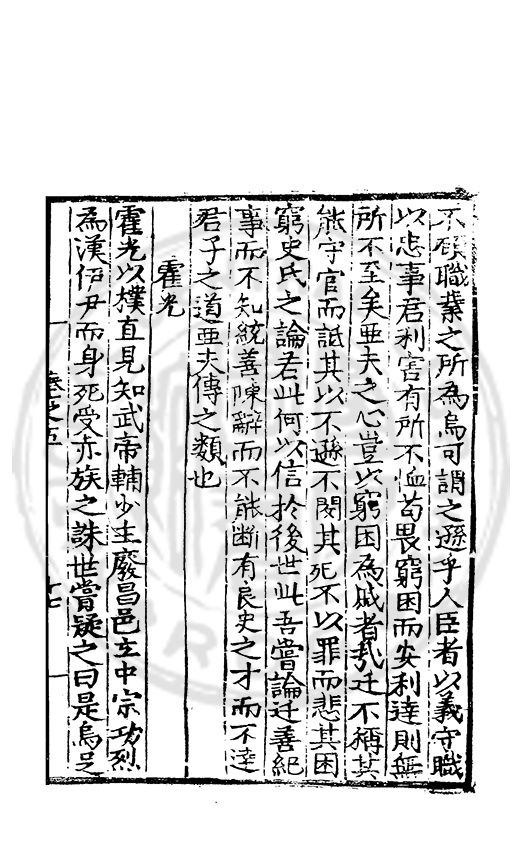 不顧職業之所為烏可謂之遜乎人臣者以義守職
以忠事君利害有所不恤苟畏窮困而安利達則無
所不至矣亜夫之心豈以窮困為戚者㢤迁不稱其
能守官而詆其以不遜不閔其死不以罪而悲其困
窮史氏之論若此何以信於後世此吾嘗論迁善紀
事而不知統善陳辭而不能斷有良史之才而不逹
君子之道亜夫傳之類也
霍光
霍光以樸直見知武帝輔少主廢昌邑立中宗功烈
為漢伊尹而身死受赤族之誅世嘗疑之曰是烏足
卷之五
十七